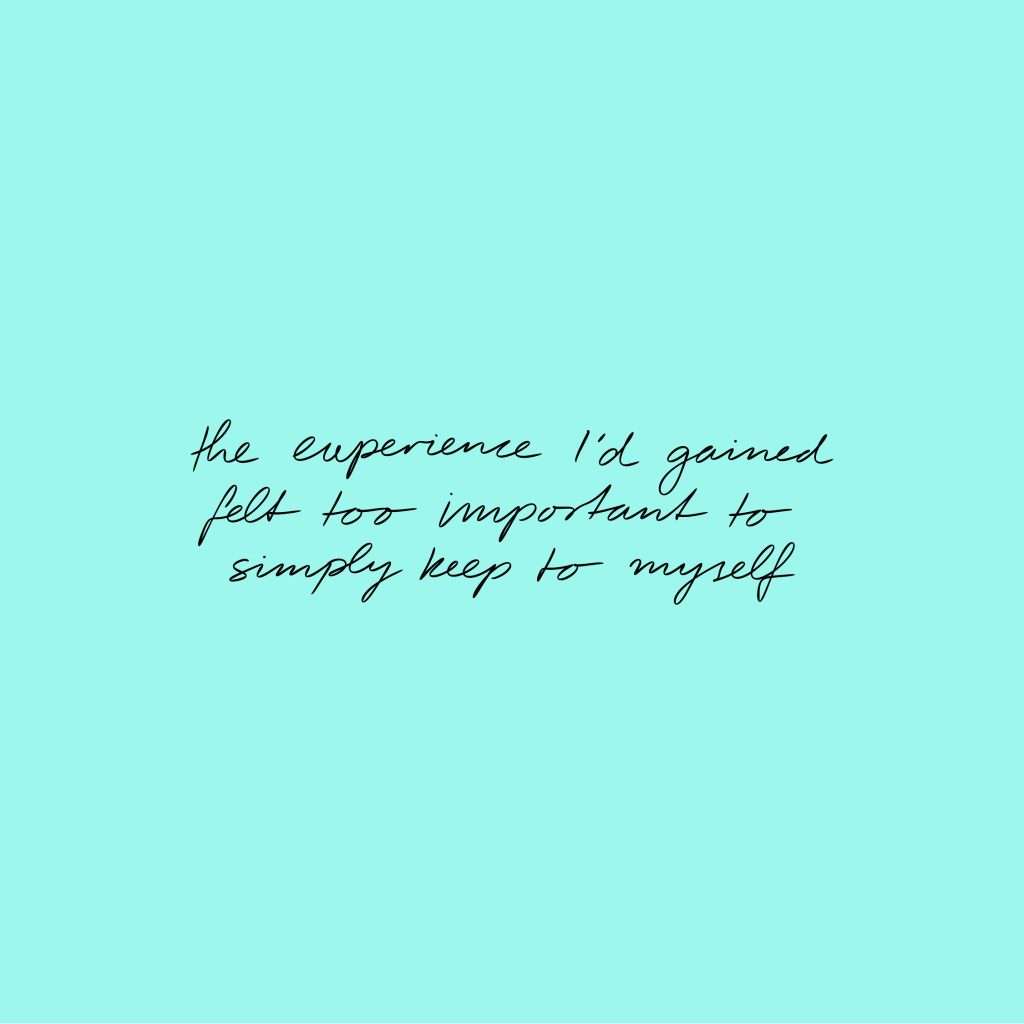 the experience I'd gained
felt too important to
simply keep to myself